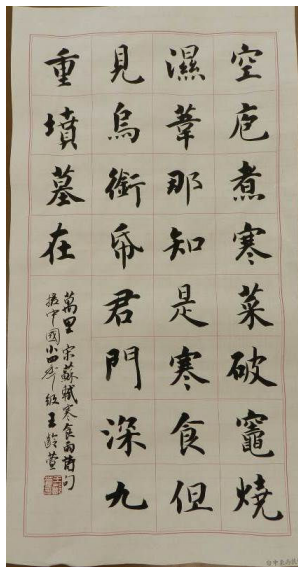 空庖煮寒菜破竈燒
濕葦那知是寒食但
見烏銜帋君門深九
重墳墓在
萬里 宋蘇軾寒食雨詩句
中國小四年級 王齡萱